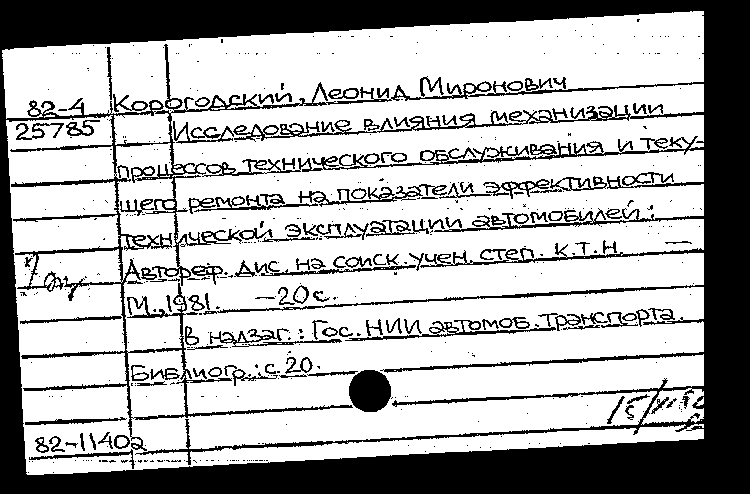 82-4 Корогодский, Леонид Миронович
25785 Исследование влияния механизации
процессов технического обслуживания и теку-
щего ремонта на показатели эффективности
технической эксплуатации автомобилей:
Автореф. дис. на соиск. учен. степ. к.т.н. —
М., 1981. —20с.
В надзаг.: Гос. НИИ автомоб. транспорта.
Библиогр.: с 20.
82-11402